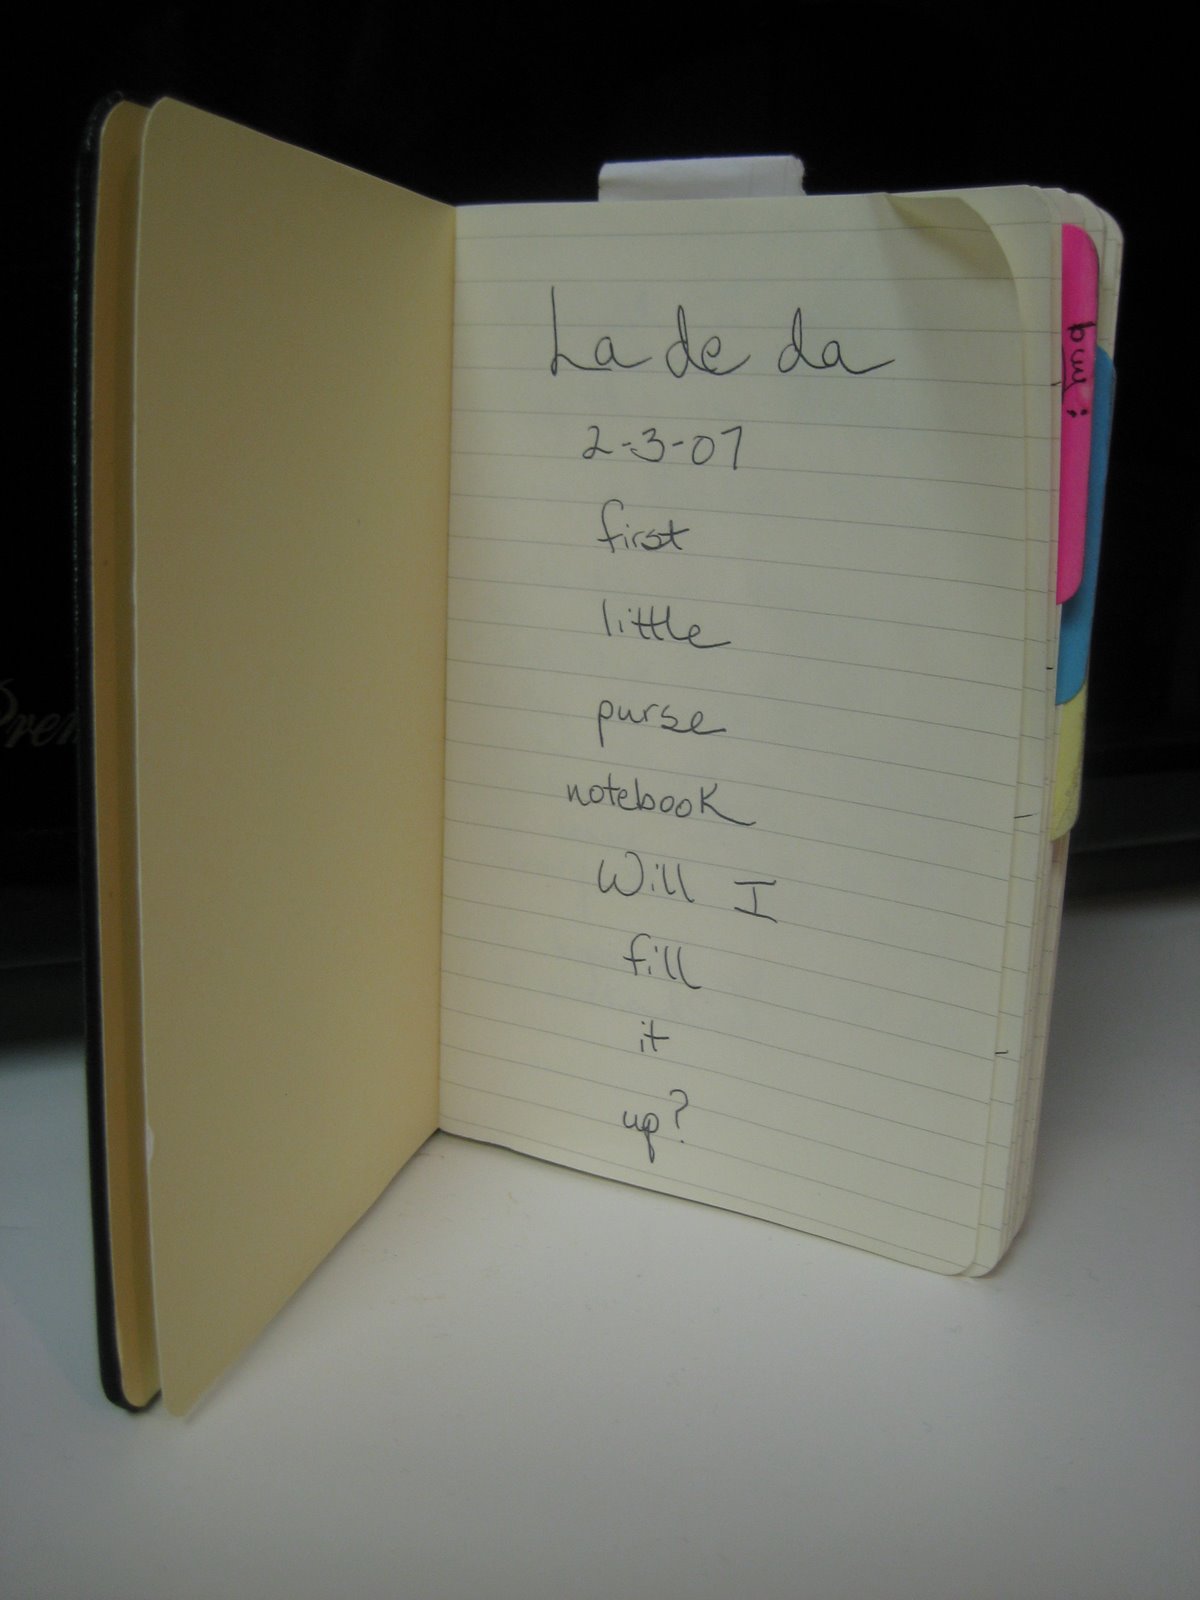 La de da
2-3-07
first
little
purse
notebook
Will I
fill
it
up?
buy: